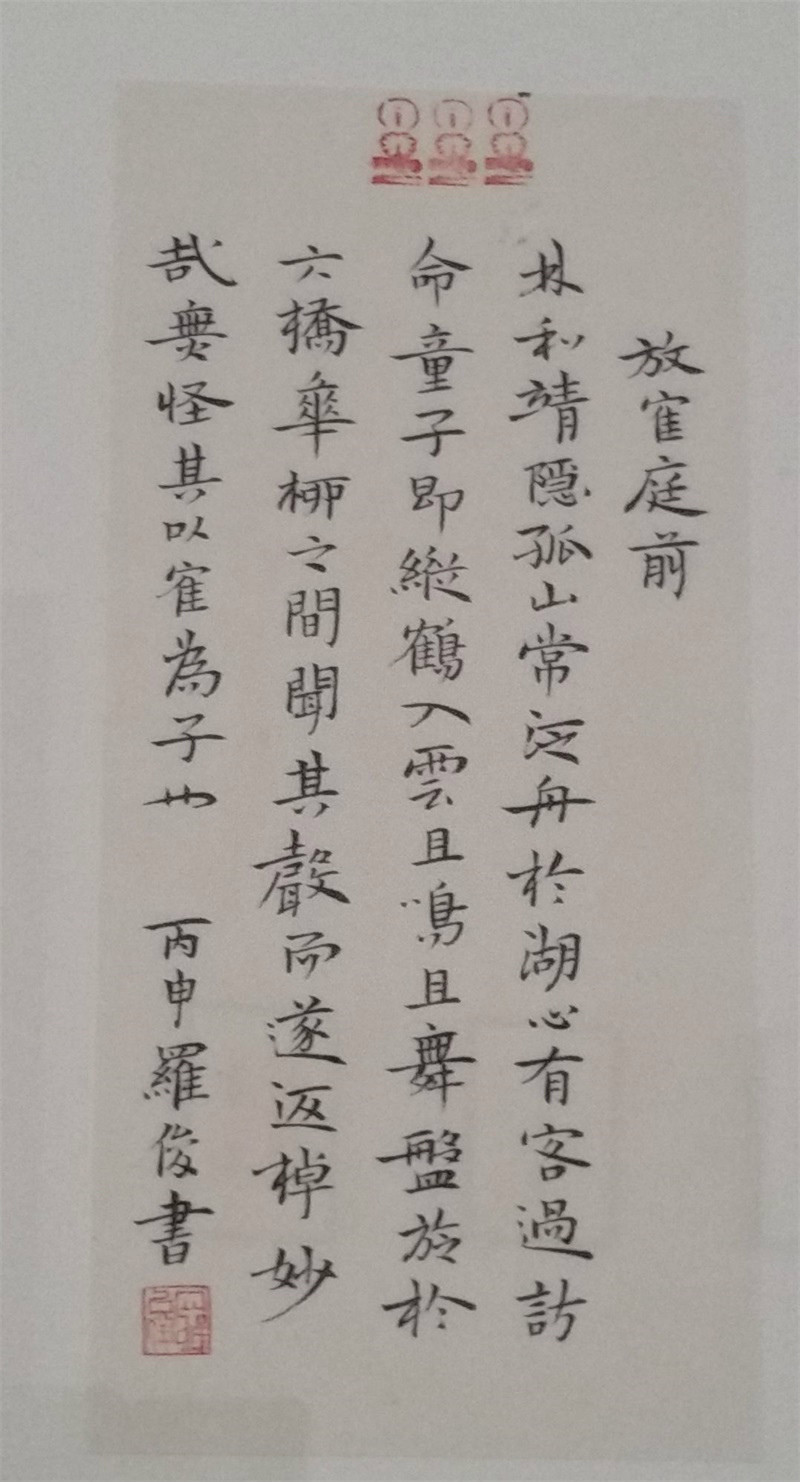 放寉庭前
林和靖隱孤山常泛舟於湖心有客過訪
命童子即縱鶴入雲且鳴且舞盤旋於
六橋華柳之間聞其聲而遂返棹妙
哉無怪其以寉為子也 丙申羅俊書